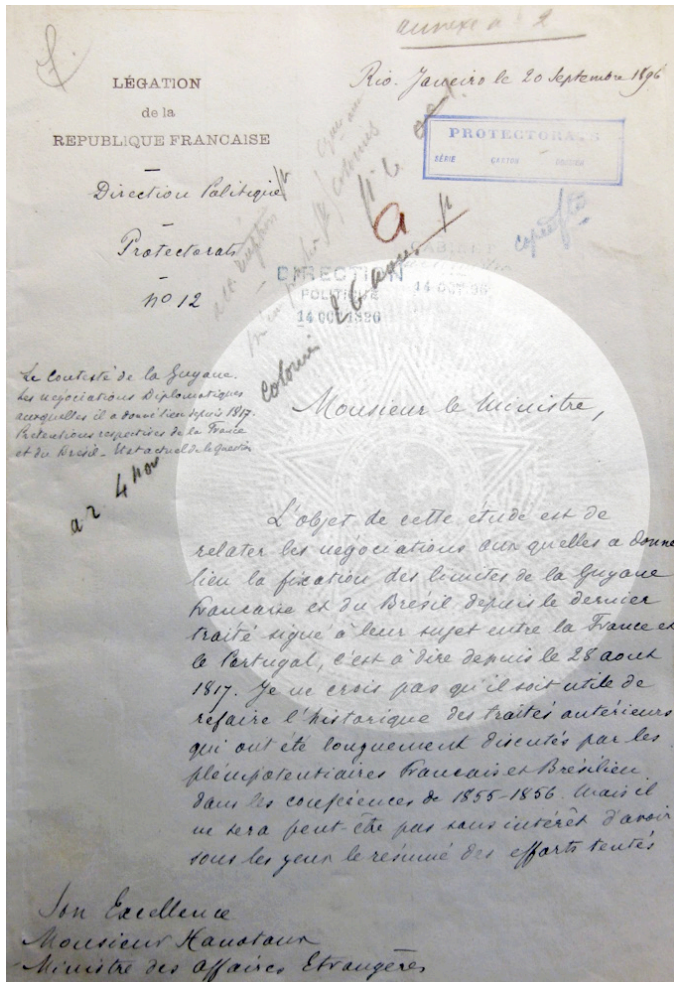 annexe n° 2
Rio. Janeiro le 20 Septembre 1896
LÉGATION
de la
REPUBLIQUE FRANÇAISE
PROTECTORATS
SÉRIE CARTON DOSSIER
Direction Politique
Protectorats
n° 12
CABINET
14 OCT. 96
DIRECTION
POLITIQUE
14 OCT 1896
Le Contesté de la Guyane.
Les négociations Diplomatiques
auxquelles il a donné lieu depuis 1817.
Prétentions respectives de la France
et du Brésil - Etat actuel de la question
a 2 4 nov
Monsieur le Ministre,
L'objet de cette étude est de
relater les négociations auxquelles a donné
lieu la fixation des limites de la Guyane
Francaise et du Brésil depuis le dernier
traité signé à leur sujet entre la France et
le Portugal, c'est à dire depuis le 28 aout
1817. Je ne crois pas qu'il soit utile de
refaire l'historique des traités antérieurs
qui ont été longuement discutés par les
plénipotentiaires Francais et Brésilien
dans les conférences de 1855-1856. Mais il
ne sera peut-être pas sans intérêt d'avoir
sous les yeux le résumé des efforts tentés
Son Excellence
Monsieur Hanotaux
Ministre des Affaires Etrangères